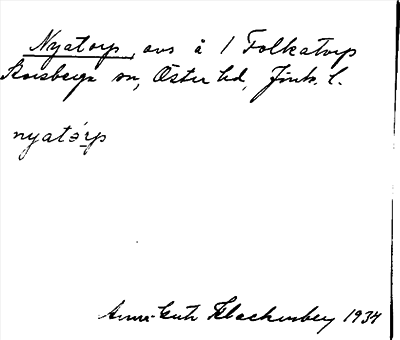 Nyatorp, avs å 1 Folkatorp
Korsberga sn, Öster hd, Jönk. l.
nyatórp
Anna-Greta Klackenberg 1934